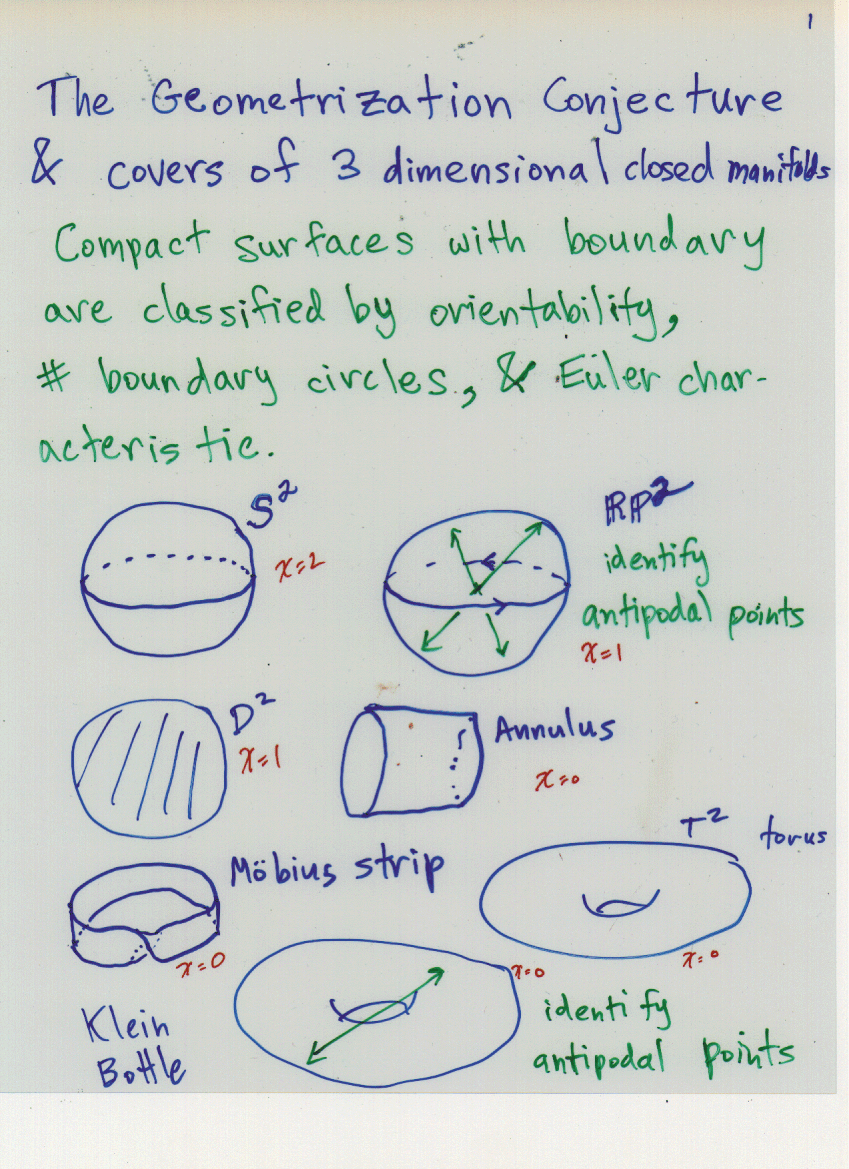 1
The Geometrization Conjecture
& covers of 3 dimensional closed manifolds
Compact surfaces with boundary
are classified by orientability,
# boundary circles, & Eüler char-
acteristic.
S²
χ=2
RP²
identify
antipodal points
χ=1
D²
χ=1
Annulus
χ=0
T² torus
χ=0
Möbius strip
χ=0
Klein
Bottle
χ=0
identify
antipodal points